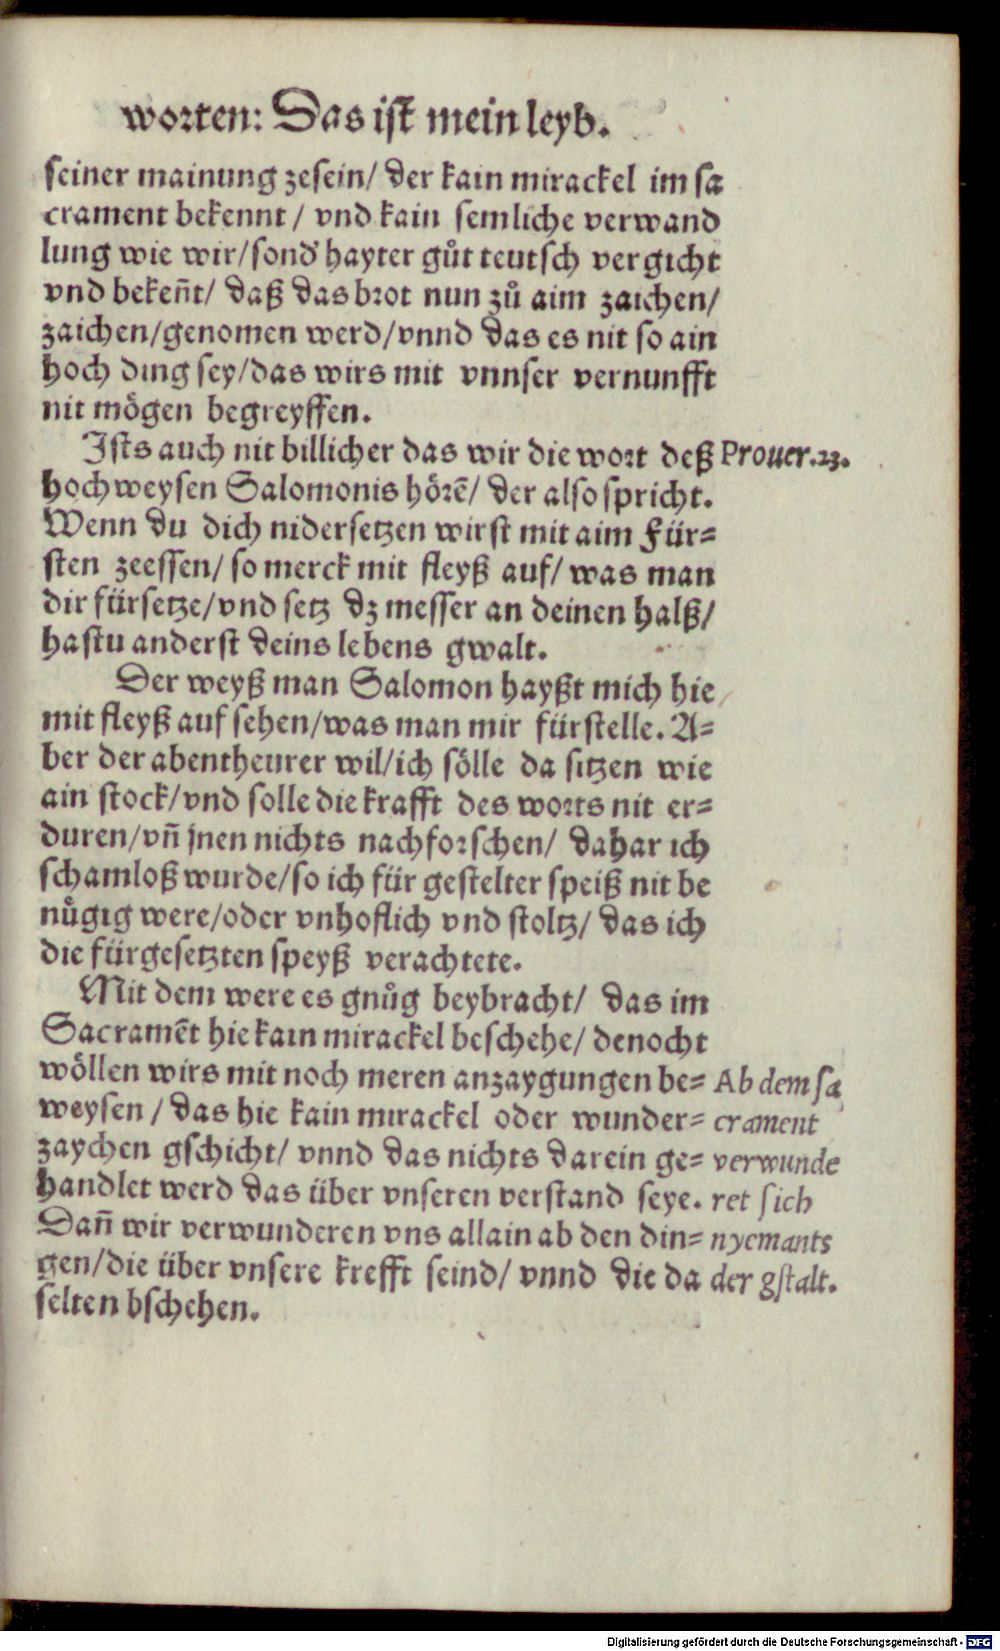 worten: Das ist mein leyb.
seiner mainung zesein/ der kain mirackel im sa
crament bekennt / vnd kain semliche verwand
lung wie wir/sond' hayter gůt teutsch vergicht
vnd bekeñt/ daß das brot nun zů aim zaichen/
zaichen/genomen werd/vnnd das es nit so ain
hoch ding sey/das wirs mit vnnser vernunfft
nit mögen begreyffen.
Ists auch nit billicher das wir die wort deß Prouer.23.
hochweysen Salomonis hörē/ der also spricht.
Wenn du dich nidersetzen wirst mit aim Für=
sten zeessen/ so merck mit fleyß auf/ was man
dir fürsetze/vnd setz dz messer an deinen halß/
hastu anderst deins lebens gwalt.
Der weyß man Salomon hayßt mich hie
mit fleyß auf sehen/was man mir fürstelle. A=
ber der abentheurer wil/ich sölle da sitzen wie
ain stock/vnd solle die krafft des worts nit er=
duren/vñ jnen nichts nachforschen/ dahar ich
schamloß wurde/so ich für gestelter speiß nit be
nůgig were/oder vnhoflich vnd stoltz/ das ich
die fürgesetzten speyß verachtete.
Mit dem were es gnůg beybracht/ das im
Sacramēt hie kain mirackel beschehe/ denocht
wöllen wirs mit noch meren anzaygungen be= Ab dem sa
weysen / das hie kain mirackel oder wunder= crament
zaychen gschicht/ vnnd das nichts darein ge= verwunde
handlet werd das über vnseren verstand seye. ret sich
Dañ wir verwunderen vns allain ab den din= nyemants
gen/die über vnsere krefft seind/ vnnd die da der gstalt.
selten bschehen.
Digitalisierung gefördert durch die Deutsche Forschungsgemeinschaft - DFG